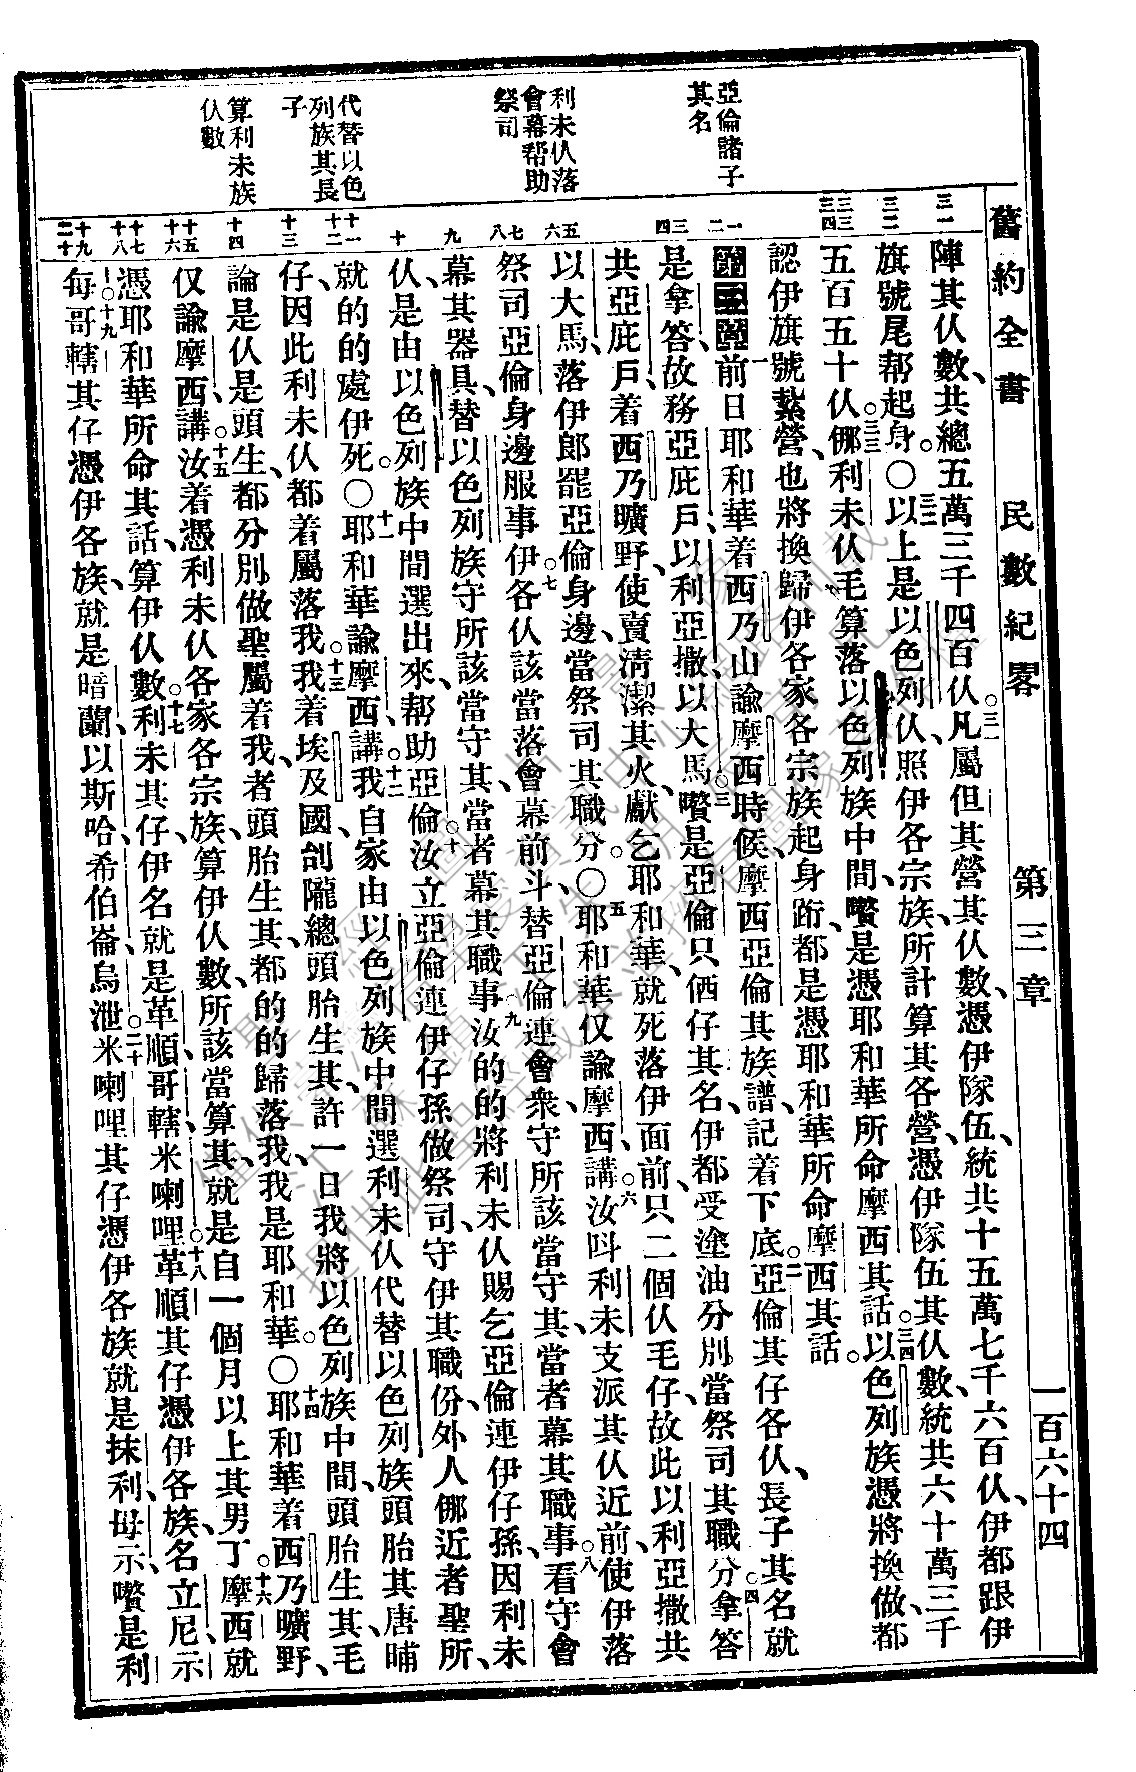 舊約全書 民數紀畧 第三章 一百六十四
亞倫諸子
其名
利未仈落
會幕帮助
祭司
代替以色
列族其長
子
算利未族
仈數
三一
三二
三三
三四
一
二
三
四
五
六
七
八
九
十
十一
十二
十三
十四
十五
十六
十七
十八
十九
二十
陣其仈數、共總五萬三千四百仈。三一凡屬但其營其仈數、憑伊隊伍、統共十五萬七千六百仈、伊都跟伊
旗號尾帮起身。〇三二以上是以色列仈照伊各宗族、所計算其各營、憑伊隊伍其仈數、統共六十萬三千
五百五十仈。三三㑚利未仈毛算落以色列族中間、囋是憑耶和華所命摩西其話。三四以色列族憑將換做、都
認伊旗號紮營、也將換歸伊各家各宗族起身跨、都是憑耶和華所命摩西其話。
第三章一前日耶和華着西乃山諭摩西時候、摩西亞倫其族譜、記着下底。二亞倫其仔各仈、長子其名就
是拿答、故務亞庇戶、以利亞撒、以大馬。三囋是亞倫只俩仔其名、伊都受塗油分別、當祭司其職分。四拿答
共亞庇戶、着西乃曠野、使賣淸潔其火、獻乞耶和華、就死落伊面前、只二個仈毛仔、故此以利亞撒共
以大馬落伊郎罷亞倫身邊、當祭司其職分。〇五耶和華仅諭摩西講、六汝叫利未支派其仈近前、使伊落
祭司亞倫身邊服事伊。七各仈該當落會幕前斗、替亞倫連會衆、守所該當守其、當者幕其職事。八看守會
幕其器具、替以色列族守所該當守其、當者幕其職事。九汝的的將利未仈賜乞亞倫連伊仔孫、因利未
仈、是由以色列族中間選出來、帮助亞倫。十汝立亞倫連伊仔孫做祭司、守伊其職份、外人㑚近者聖所、
就的的處伊死。〇十一耶和華諭摩西講、十二我自家由以色列族中間選利未仈代替以色列族頭胎其唐晡
仔、因此利未仈都着屬落我。十三我着埃及國、刣隴總頭胎生其、許一日我將以色列族中間、頭胎生其、毛
論是仈是頭生、都分別做聖屬着我、者頭胎生其、都的的歸落我、我是耶和華。〇十四耶和華着西乃曠野、
仅諭摩西講、十五汝着憑利未仈各家各宗族、算伊仈數、所該當算其、就是自一個月以上其男丁。十六摩西就
憑耶和華所命其話、算伊仈數。十七利未其仔、伊名就是革順哥轄米喇哩。十八革順其仔憑伊各族、名立尼、示
每。〇十九哥轄其仔憑伊各族、就是暗蘭、以斯哈、希伯崙、烏泄。二十米喇哩其仔憑伊各族、就是抹利、母示、囋是利